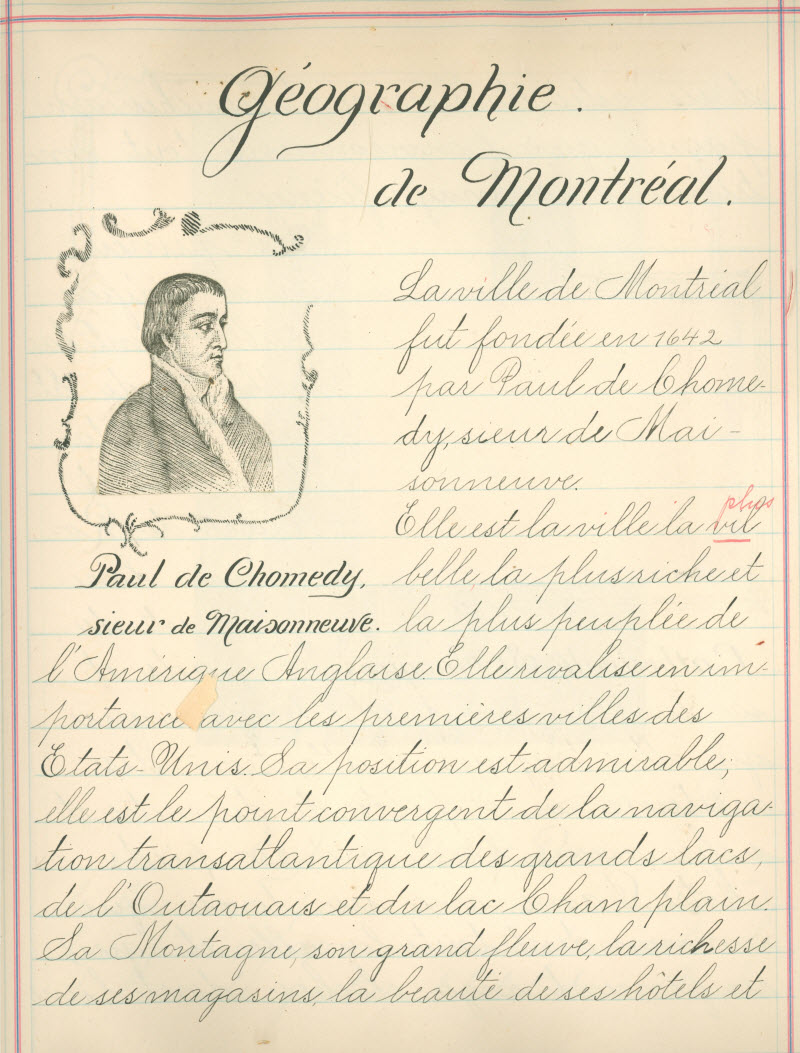 Géographie.
de Montréal.
La ville de Montréal
fut fondée en 1642
par Paul de Chome-
dy, sieur de Mai-
sonneuve.
Elle est la ville la vil plus
belle la plus riche et
la plus peuplée de
Paul de Chomedy,
sieur de Maisonneuve.
l'Amérique Anglaise. Elle rivalise en im-
portance avec les premières villes des
Etats-Unis. Sa position est admirable;
elle est le point convergent de la naviga-
tion transatlantique des grands lacs,
de l'Outaouais et du lac Champlain.
Sa Montagne, son grand fleuve, la richesse
de ses magasins, la beauté de ses hôtels et